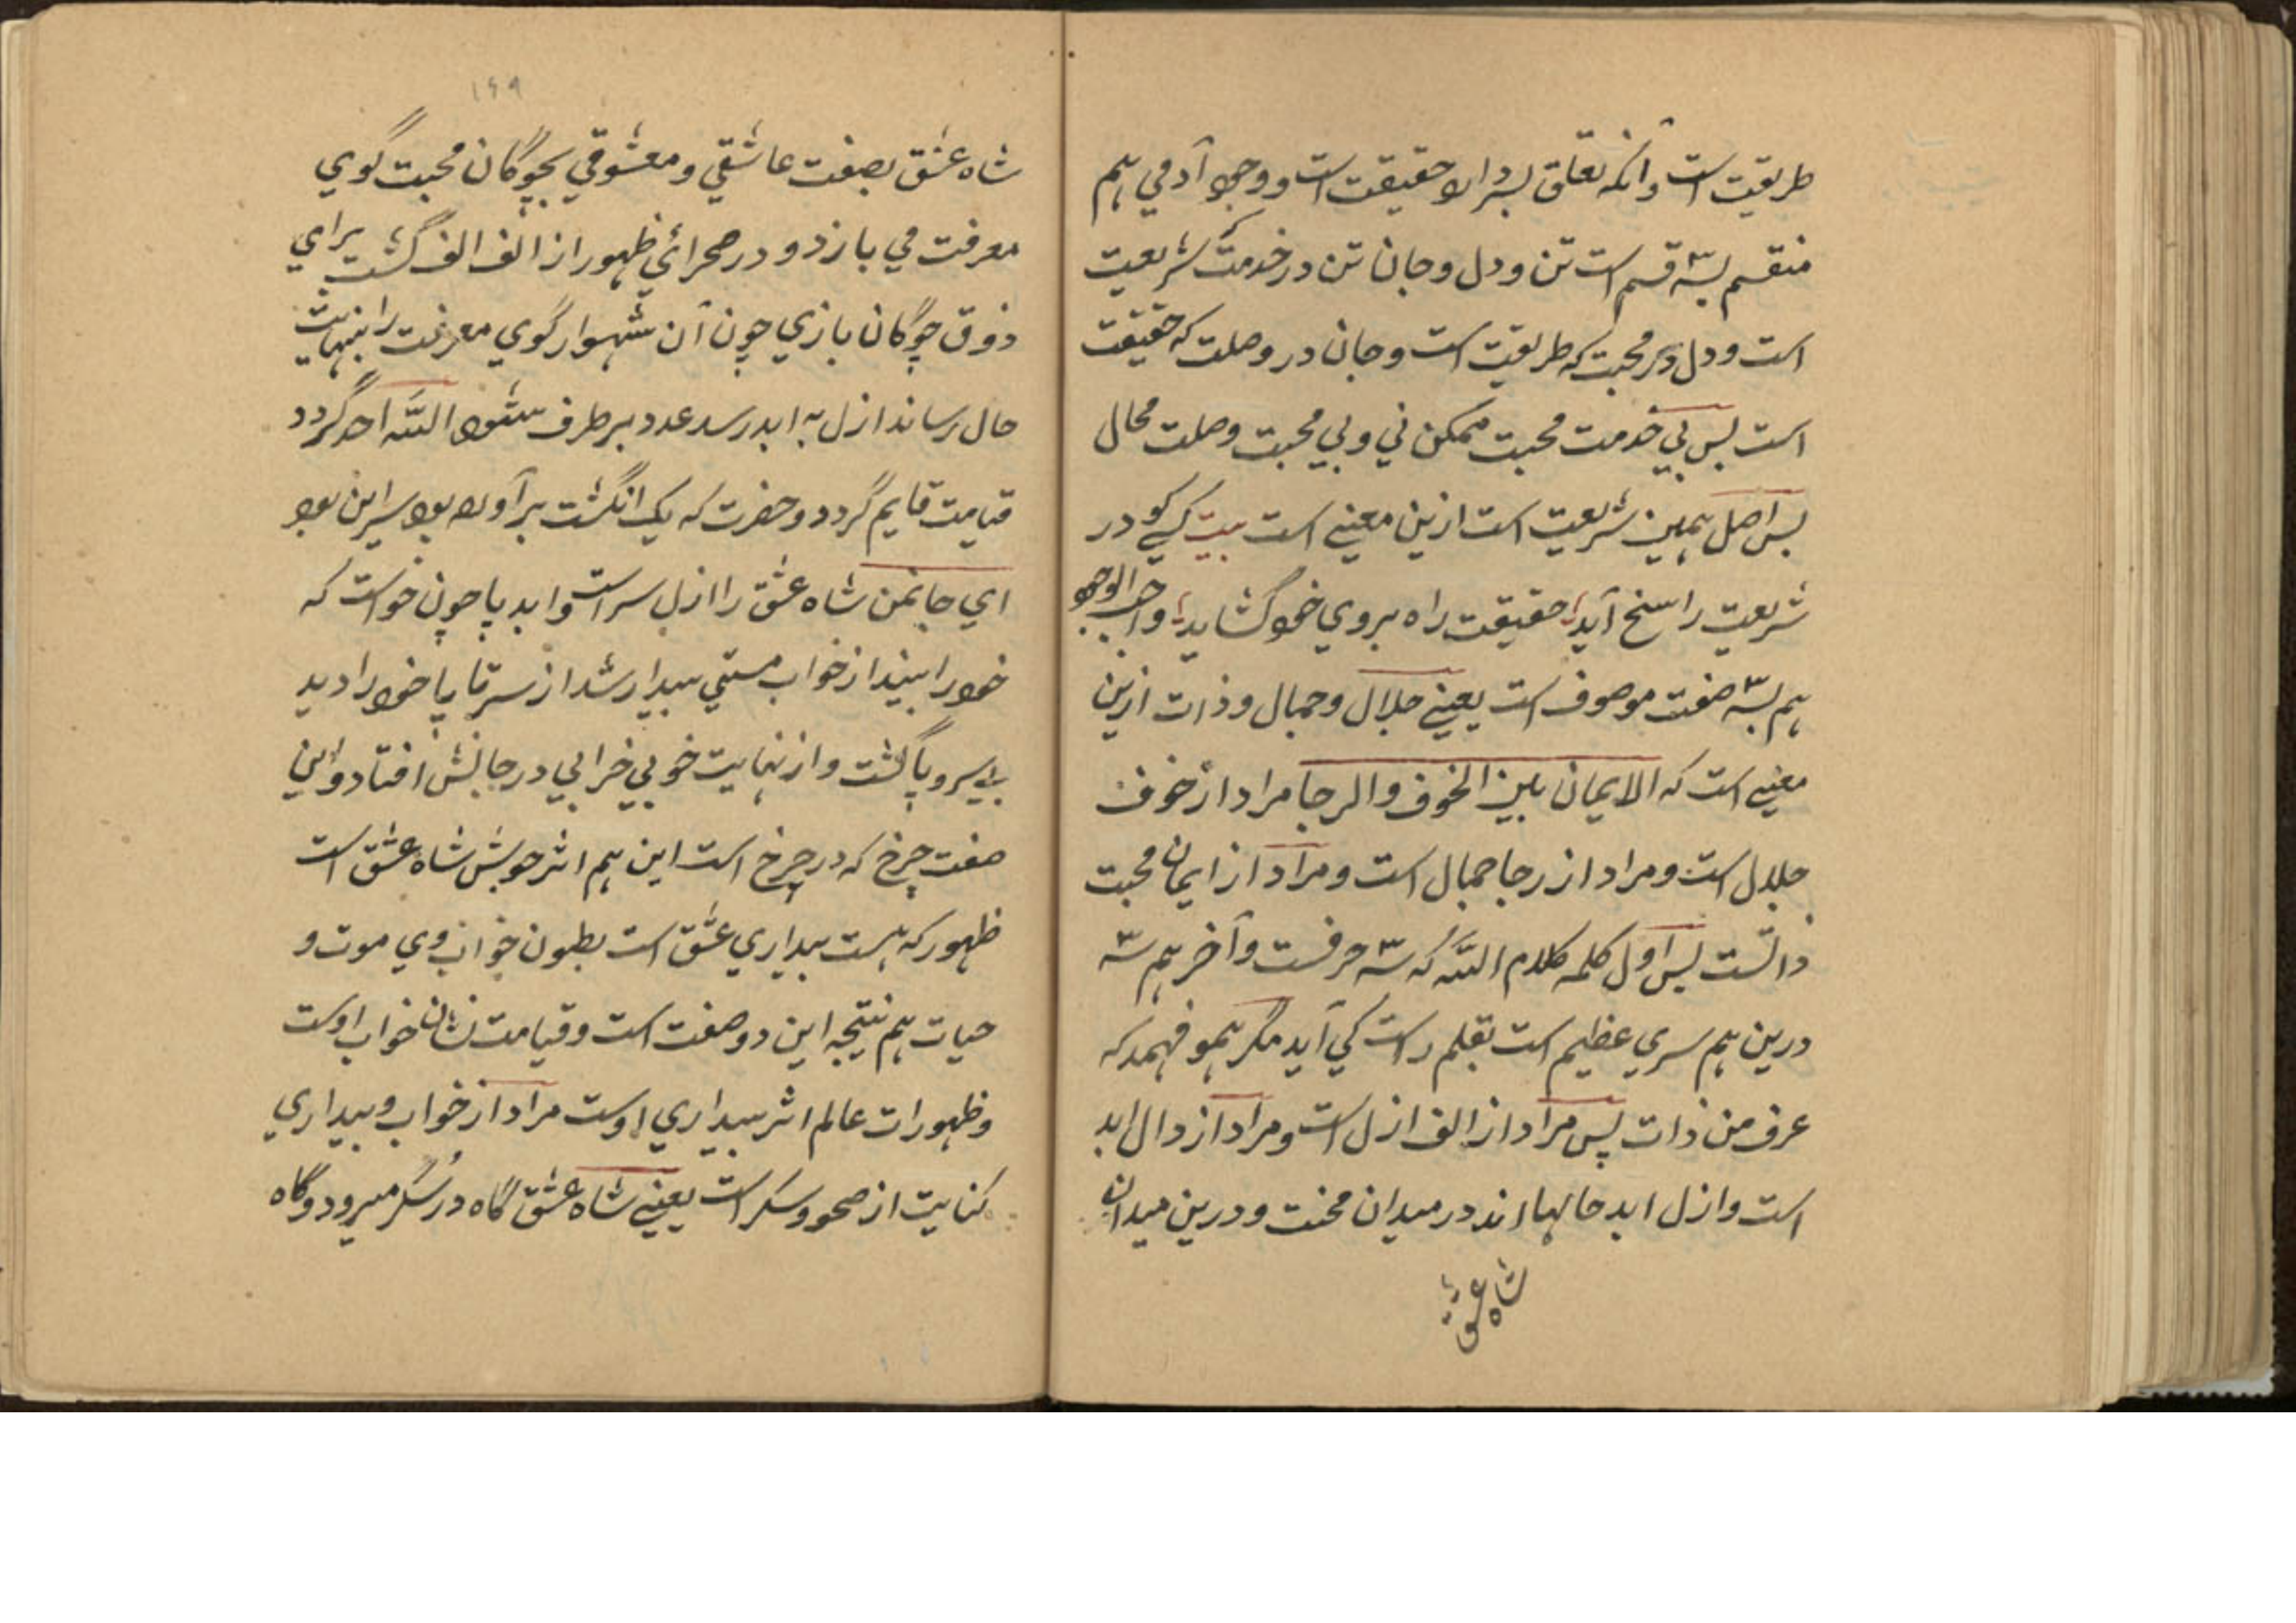 طریقت است و آنکه تعلق بسر دارد حقیقت است و وجود آدمي هم
منقسم بسه قسم است تن و دل و جان تن در خدمت که شریعت
است و دل در محبت که طریقت است و جان در وصلت که حقیقت
است پس بي خدمت محبت ممکن ني و بي محبت وصلت محال
پس اصل همین شریعت است ازین معنیے است بیت کسے کو در
شریعت راسخ آید حقیقت راه بروي خود گشاید واجب الوجود
هم بسه صفت موصوف است یعنے جلال و جمال و ذات ازین
معنیے است که الایمان بین الخوف والرجا مراد از خوف
جلال است و مراد از رجا جمال است و مراد از ایمان محبت
ذاتست پس اول کلمه کلام الله که سه حرفست و آخر هم سه
درین هم سري عظیم است بقلم راست کي آید مگر همو فهمد که
عرف من ذات پس مراد از الف ازل است و مراد از دال ابد
است و ازل ابد حالها اند در میدان محنت و درین میدان
شاه عشق
۱۴۹
شاه عشق بصفت عاشقي و معشوقي بچوگان محبت گوي
معرفت مي بازد و در صحرائي ظهور از الف الف گشت براي
ذوق چوگان بازي چون آن شهسوار گوي معرفت را بنهایت
حال رساند ازل به ابد رسد عدد برطرف شود الله احد گردد
قیامت قایم گردد و حضرت که یک انگشت برآورده بود سر این بود
اي جانمن شاه عشق را ازل سر است و ابد پا چون خواست که
خود را بیند از خواب مستي بیدار شد از سر تا پا خود را دید
بے سر و پا گشت و از نهایت خوبي خرابي در جانش افتاد و این
صفت چرخ که در چرخ است این هم اثر جوشش شاه عشق است
ظهور که هست بیداري عشق است بطون خواب وي موت و
حیات هم نتیجه این دو صفت است و قیامت نشان خواب اوست
و ظهورات عالم اثر بیداري اوست مراد از خواب و بیداري
کنایت از صحو و سکر است یعنے شاه عشق گاه در سکر میرود و گاه